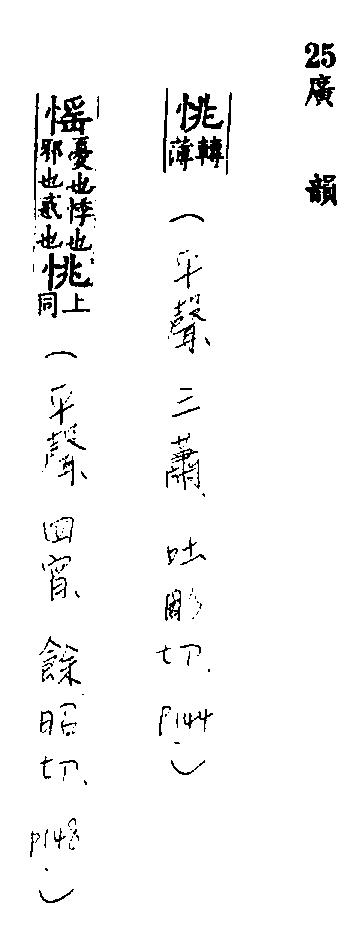 25廣韻
恌輕薄(平聲、三蕭、吐彫切、P144.)
愮憂也悸也邪也惑也恌上同(平聲、四宵、餘昭切、P148.)